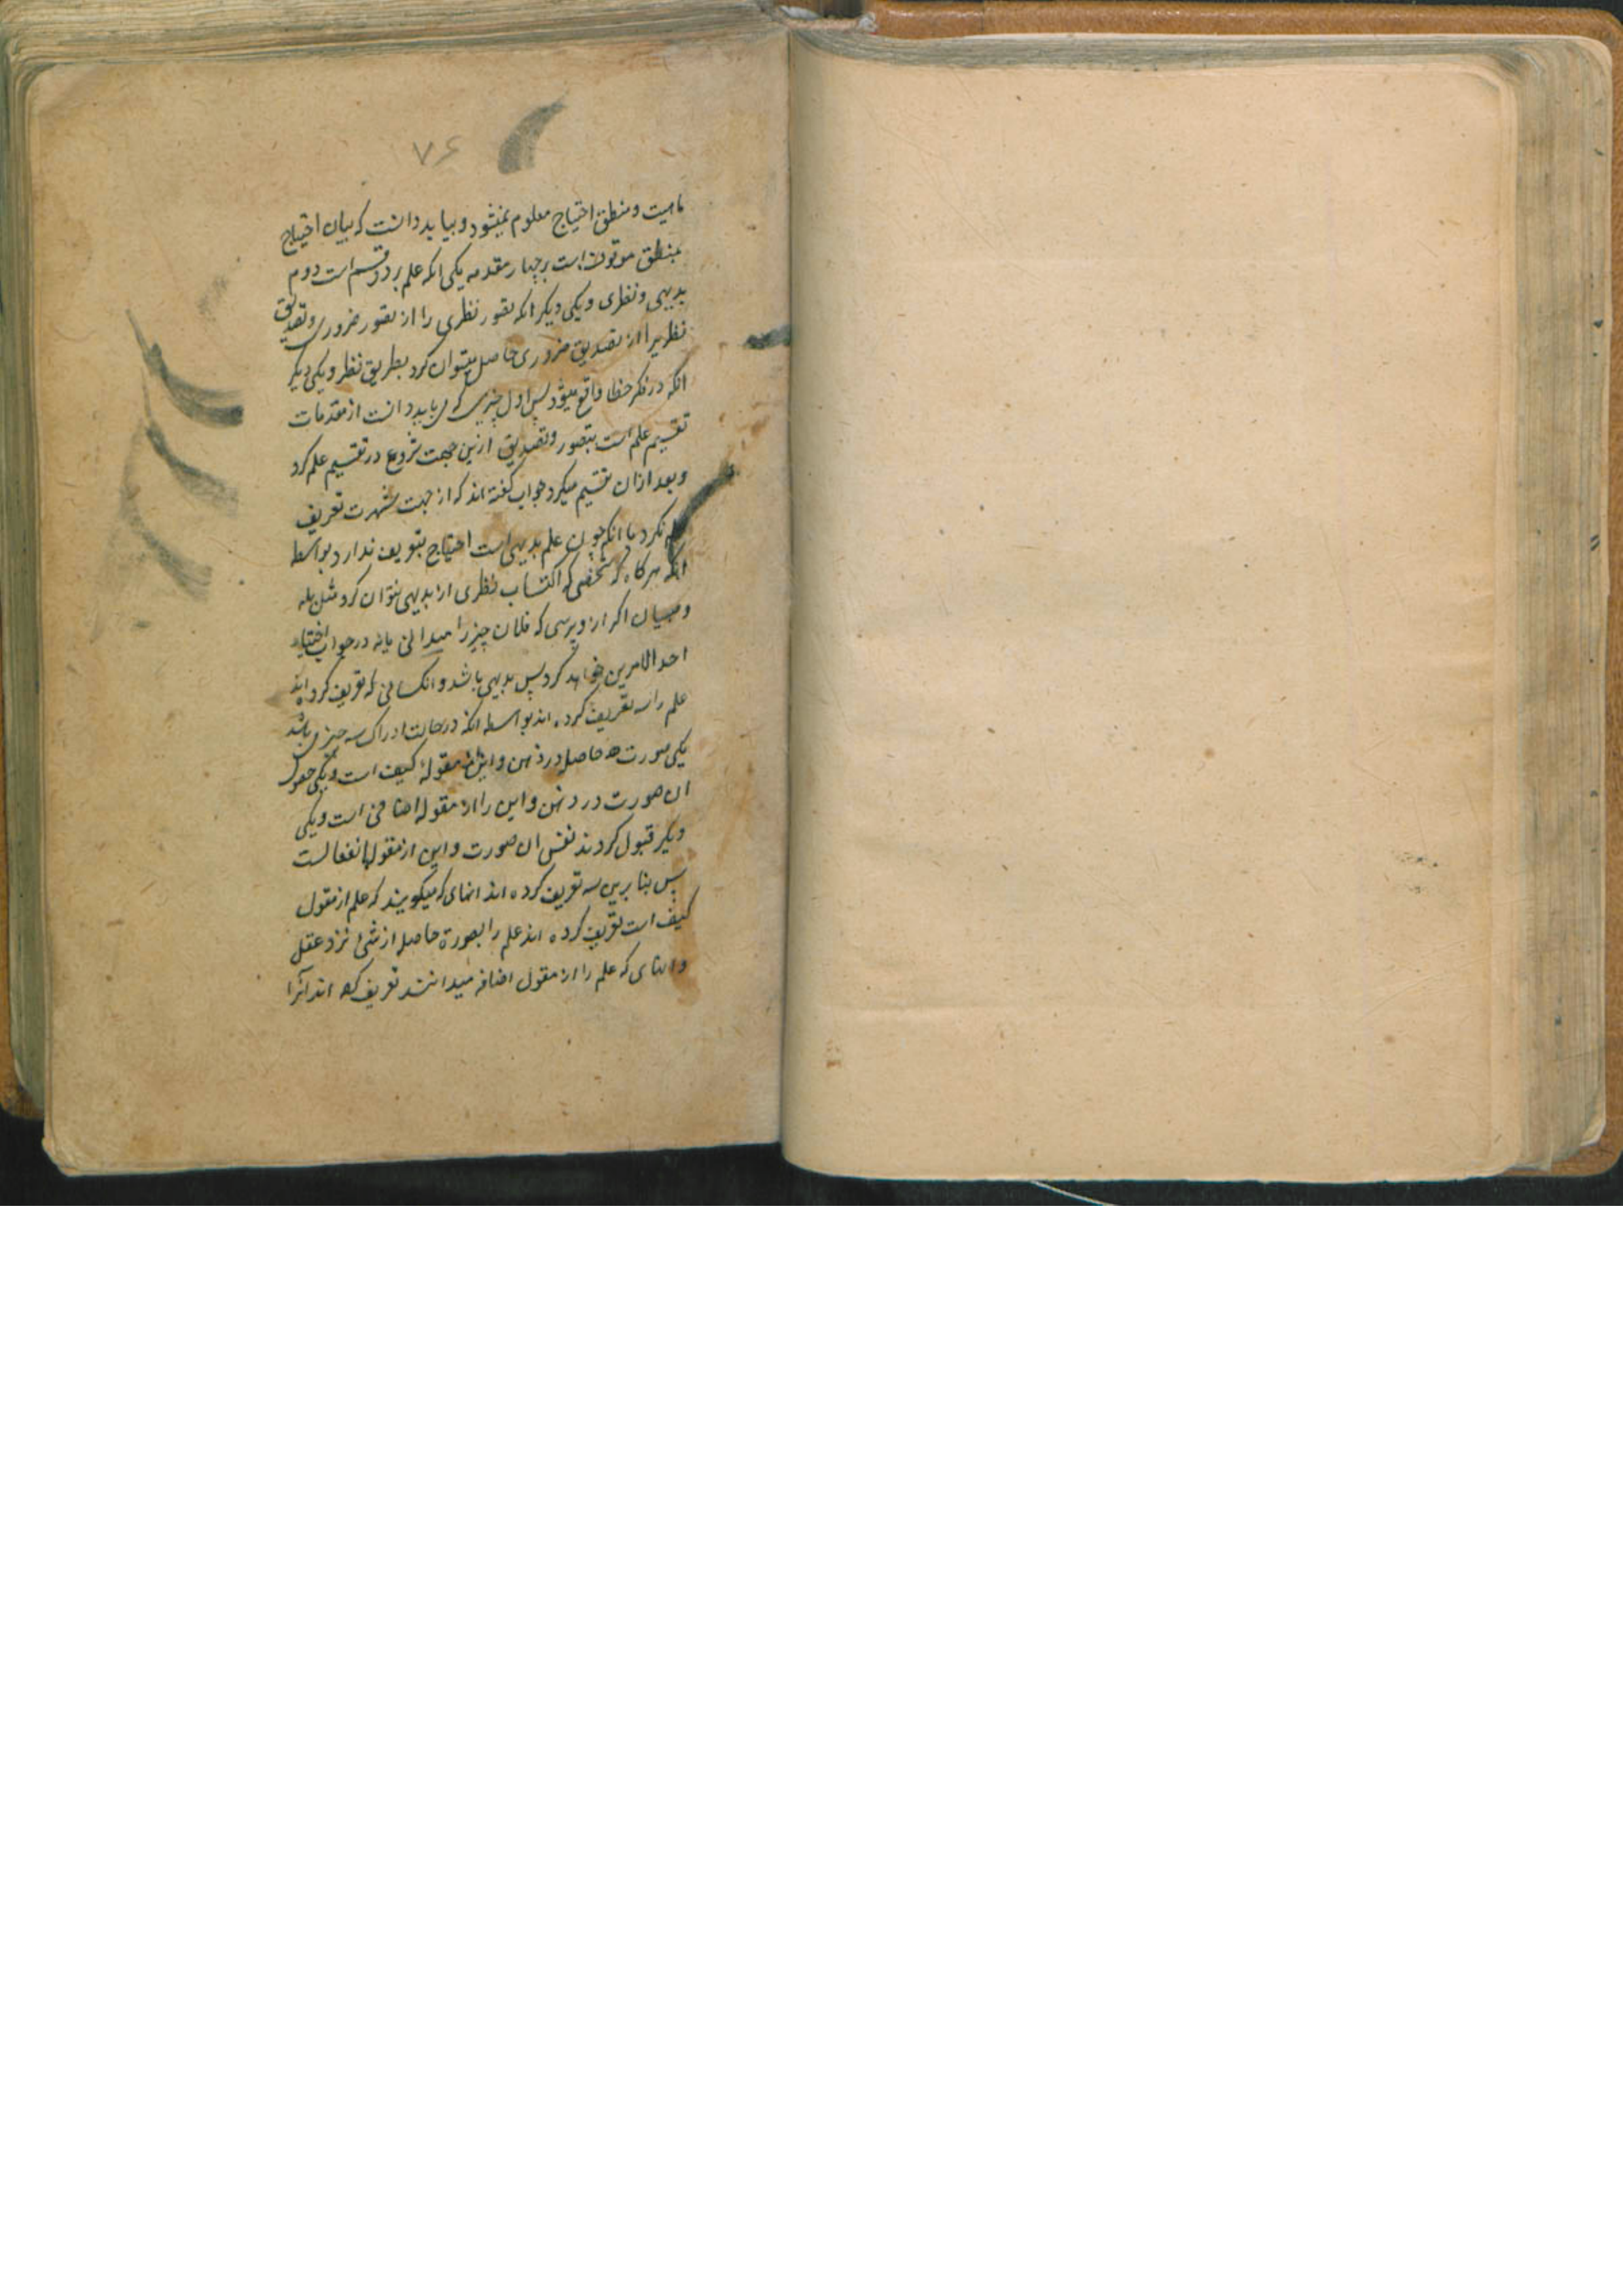 ۷۶
ماهیت و منطق احتیاج معلوم نمیشود و بباید دانست که بیان احتیاج
بمنطق موقوف است بر چهار مقدمه یکی انکه علم بر دو قسم است دوم
بدیهی و نظری و یکی دیکر انکه تصور نظری را از تصور ضروری و تصدیق
نظریرا از تصدیق ضروری حاصل میتوان کرد بطریق نظر و یکی دیکر
انکه در فکر خطا واقع میشود پس اول چیزی که می باید دانست از مقدمات
تقسیم علم است بتصور و تصدیق ازین جهت شروع در تقسیم علم کرد
و بعد ازان تقسیم میکرد جواب کفته اند که از جهت شهرت تعریف
علم نکرد یا انکه چون علم بدیهی است احتیاج بتعریف ندارد بواسطه
انکه هرکاه که شخصی که اکتساب نظری از بدیهی نتوان کرد مثل بله
و صبیان اکر ازو پرسی که فلان چیز را میدانی یا نه در جواب اختیار
احد الامرین خواهد کرد پس بدیهی باشد و انکسانی که تعریف کرده اند
علم را سه تعریف کرده اند بواسطه انکه در حالت ادراک سه چیز می باشد
یکی صورت حاصله در ذهن و این از مقولهٔ کیف است و یکی حصول
ان صورت در ذهن و این را از مقوله اضافی است و یکی
دیکر قبول کردند نفس ان صورت و این از مقوله انفعالست
پس بنا برین سه تعریف کرده اند انهای که میکویند که علم از مقول
کیف است تعریف کرده اند علم را بصورة حاصله از شئ نزد عقل
و انهای که علم را از مقول اضافه میدانند تعریف کرده اند آنرا